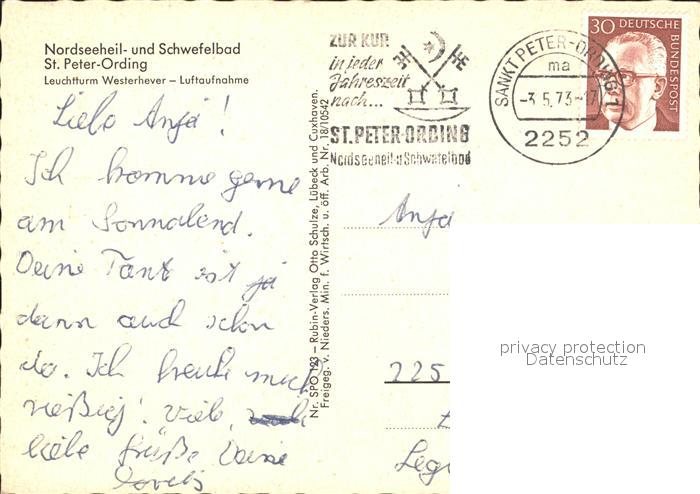 Nordseeheil- und Schwefelbad
St. Peter-Ording
Leuchtturm Westerhever – Luftaufnahme
Liebe Anja!
Ich komme gerne
am Sonnabend.
Deine Tant ist ja
dann auch schon
da. Ich freue mich
rießig! Viele,
liebe Grüße Deine
Nr. SPO 123 – Rubin-Verlag Otto Schulze, Lübeck und Cuxhaven.
Freigeg. v. Nieders. Min. f. Wirtsch. u. öff. Arb. Nr. 18/10542
ZUR KUR
in jeder
Jahreszeit
nach...
ST. PETER-ORDING
Nordseeheil-u Schwefelbad
SANKT PETER-ORDING 1
ma
-3.5.73-17
2252
30 DEUTSCHE BUNDESPOST
Anja
225
privacy protection
Datenschutz